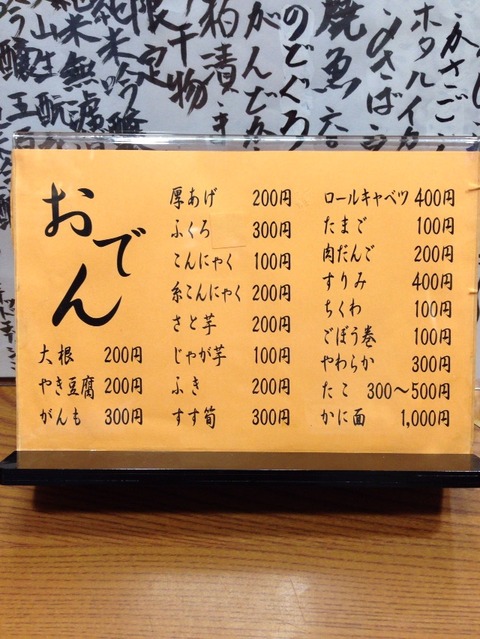 かさご
ホタルイカ
のさばう
焼魚
のどぐろ
がんど
粕漬
干物
限定
純米吟醸
米無濾
山
吟醸
おでん
大根 200円
やき豆腐 200円
がんも 300円
厚あげ 200円
ふくろ 300円
こんにゃく 100円
糸こんにゃく 200円
さと芋 200円
じゃが芋 100円
ふき 200円
すす筍 300円
ロールキャベツ 400円
たまご 100円
肉だんご 200円
すりみ 400円
ちくわ 100円
ごぼう巻 100円
やわらか 300円
たこ 300〜500円
かに面 1,000円